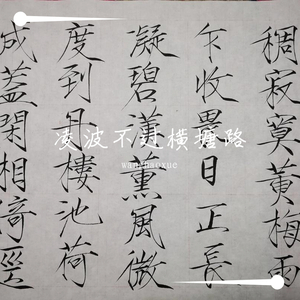 稠寂寞黄梅雨
乍收晝日正長
凝碧漢薰風微
度到丹樓池荷
成蓋閑相倚逕
凌波不过横塘路